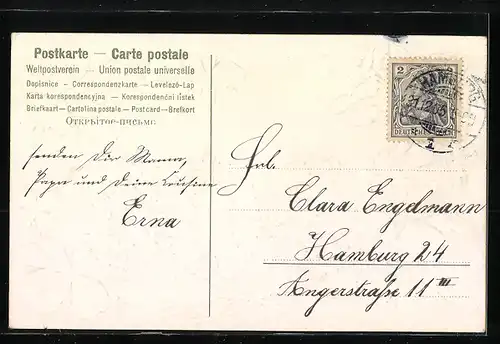 Postkarte — Carte postale
Weltpostverein — Union postale universelle
Dopisnice – Correspondenzkarte – Levelező-Lap
Karta korespondencyjna – Korespondenční lístek
Briefkaart – Cartolina postale – Postcard – Brefkort
Открытое письмо
senden Dir Mama,
Papa und Deine Cousine
Erna
2
DEUTSCHES
HAMBURG
1
Frl.
Clara Engelmann
Hamburg 24
Angerstraße 11 III